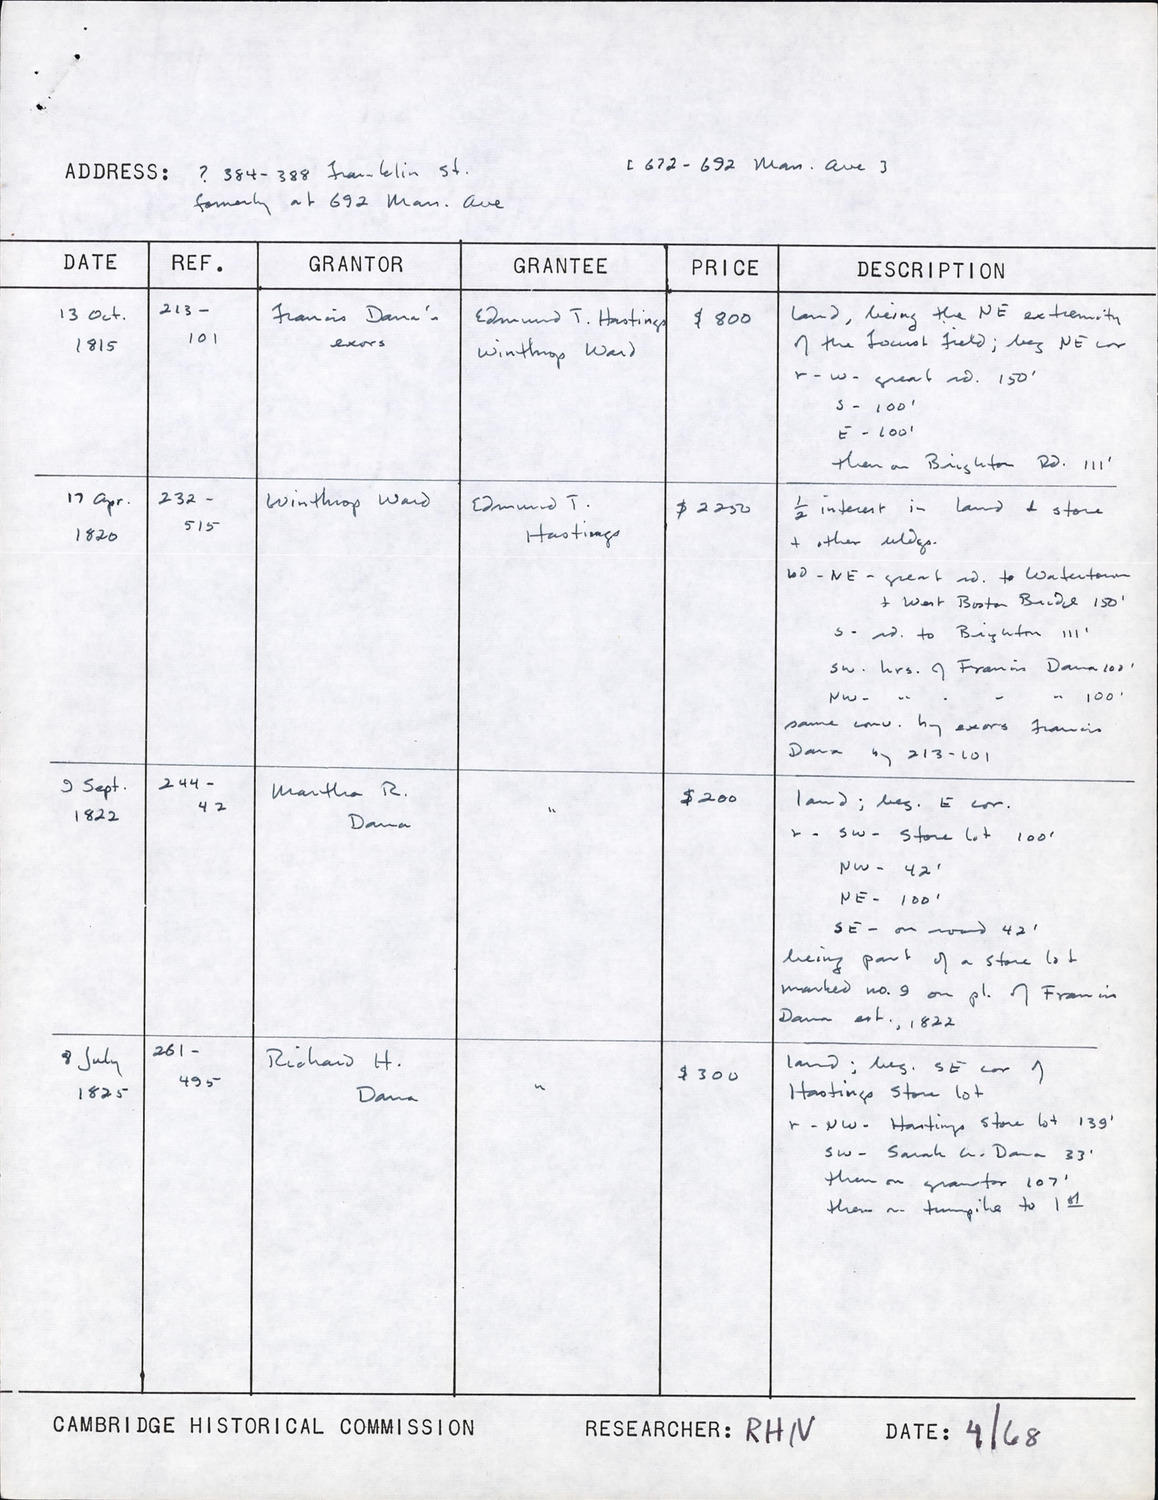 ADDRESS: ? 384-388 Franklin St. [ 672-692 Mass. Ave ]
formerly at 692 Mass. Ave
DATE REF. GRANTOR GRANTEE PRICE DESCRIPTION
13 Oct. 1815
213-101
Francis Dana's exors
Edmund T. Hastings
Winthrop Ward
$ 800
land, being the NE extremity
of the Locust Field; beg NE cor
r - W - great rd. 150'
S - 100'
E - 100'
then on Brighton Rd. 111'
17 Apr.
1820
232-
515
Winthrop Ward
Edmund T.
Hastings
$ 2250
½ interest in land & store
+ other bldgs.
bd - NE - great rd. to Watertown
+ West Boston Bridge 150'
S - rd. to Brighton 111'
SW. hrs. of Francis Dana 100'
NW - " " " " 100'
same conv. by exors Francis
Dana by 213-101
9 Sept.
1822
244-
42
Martha R.
Dana
"
$ 200
land; beg. E cor.
r - SW - Store lot 100'
NW - 42'
NE - 100'
SE - on road 42'
being part of a store lot
marked no. 9 on pl. of Francis
Dana est., 1822
8 July
1825
261-
495
Richard H.
Dana
"
$ 300
land; beg. SE cor of
Hastings Store lot
r - NW - Hastings store lot 139'
SW - Sarah W. Dana 33'
then on grantor 107'
then on turnpike to 1st
CAMBRIDGE HISTORICAL COMMISSION RESEARCHER: RHN DATE: 4/68